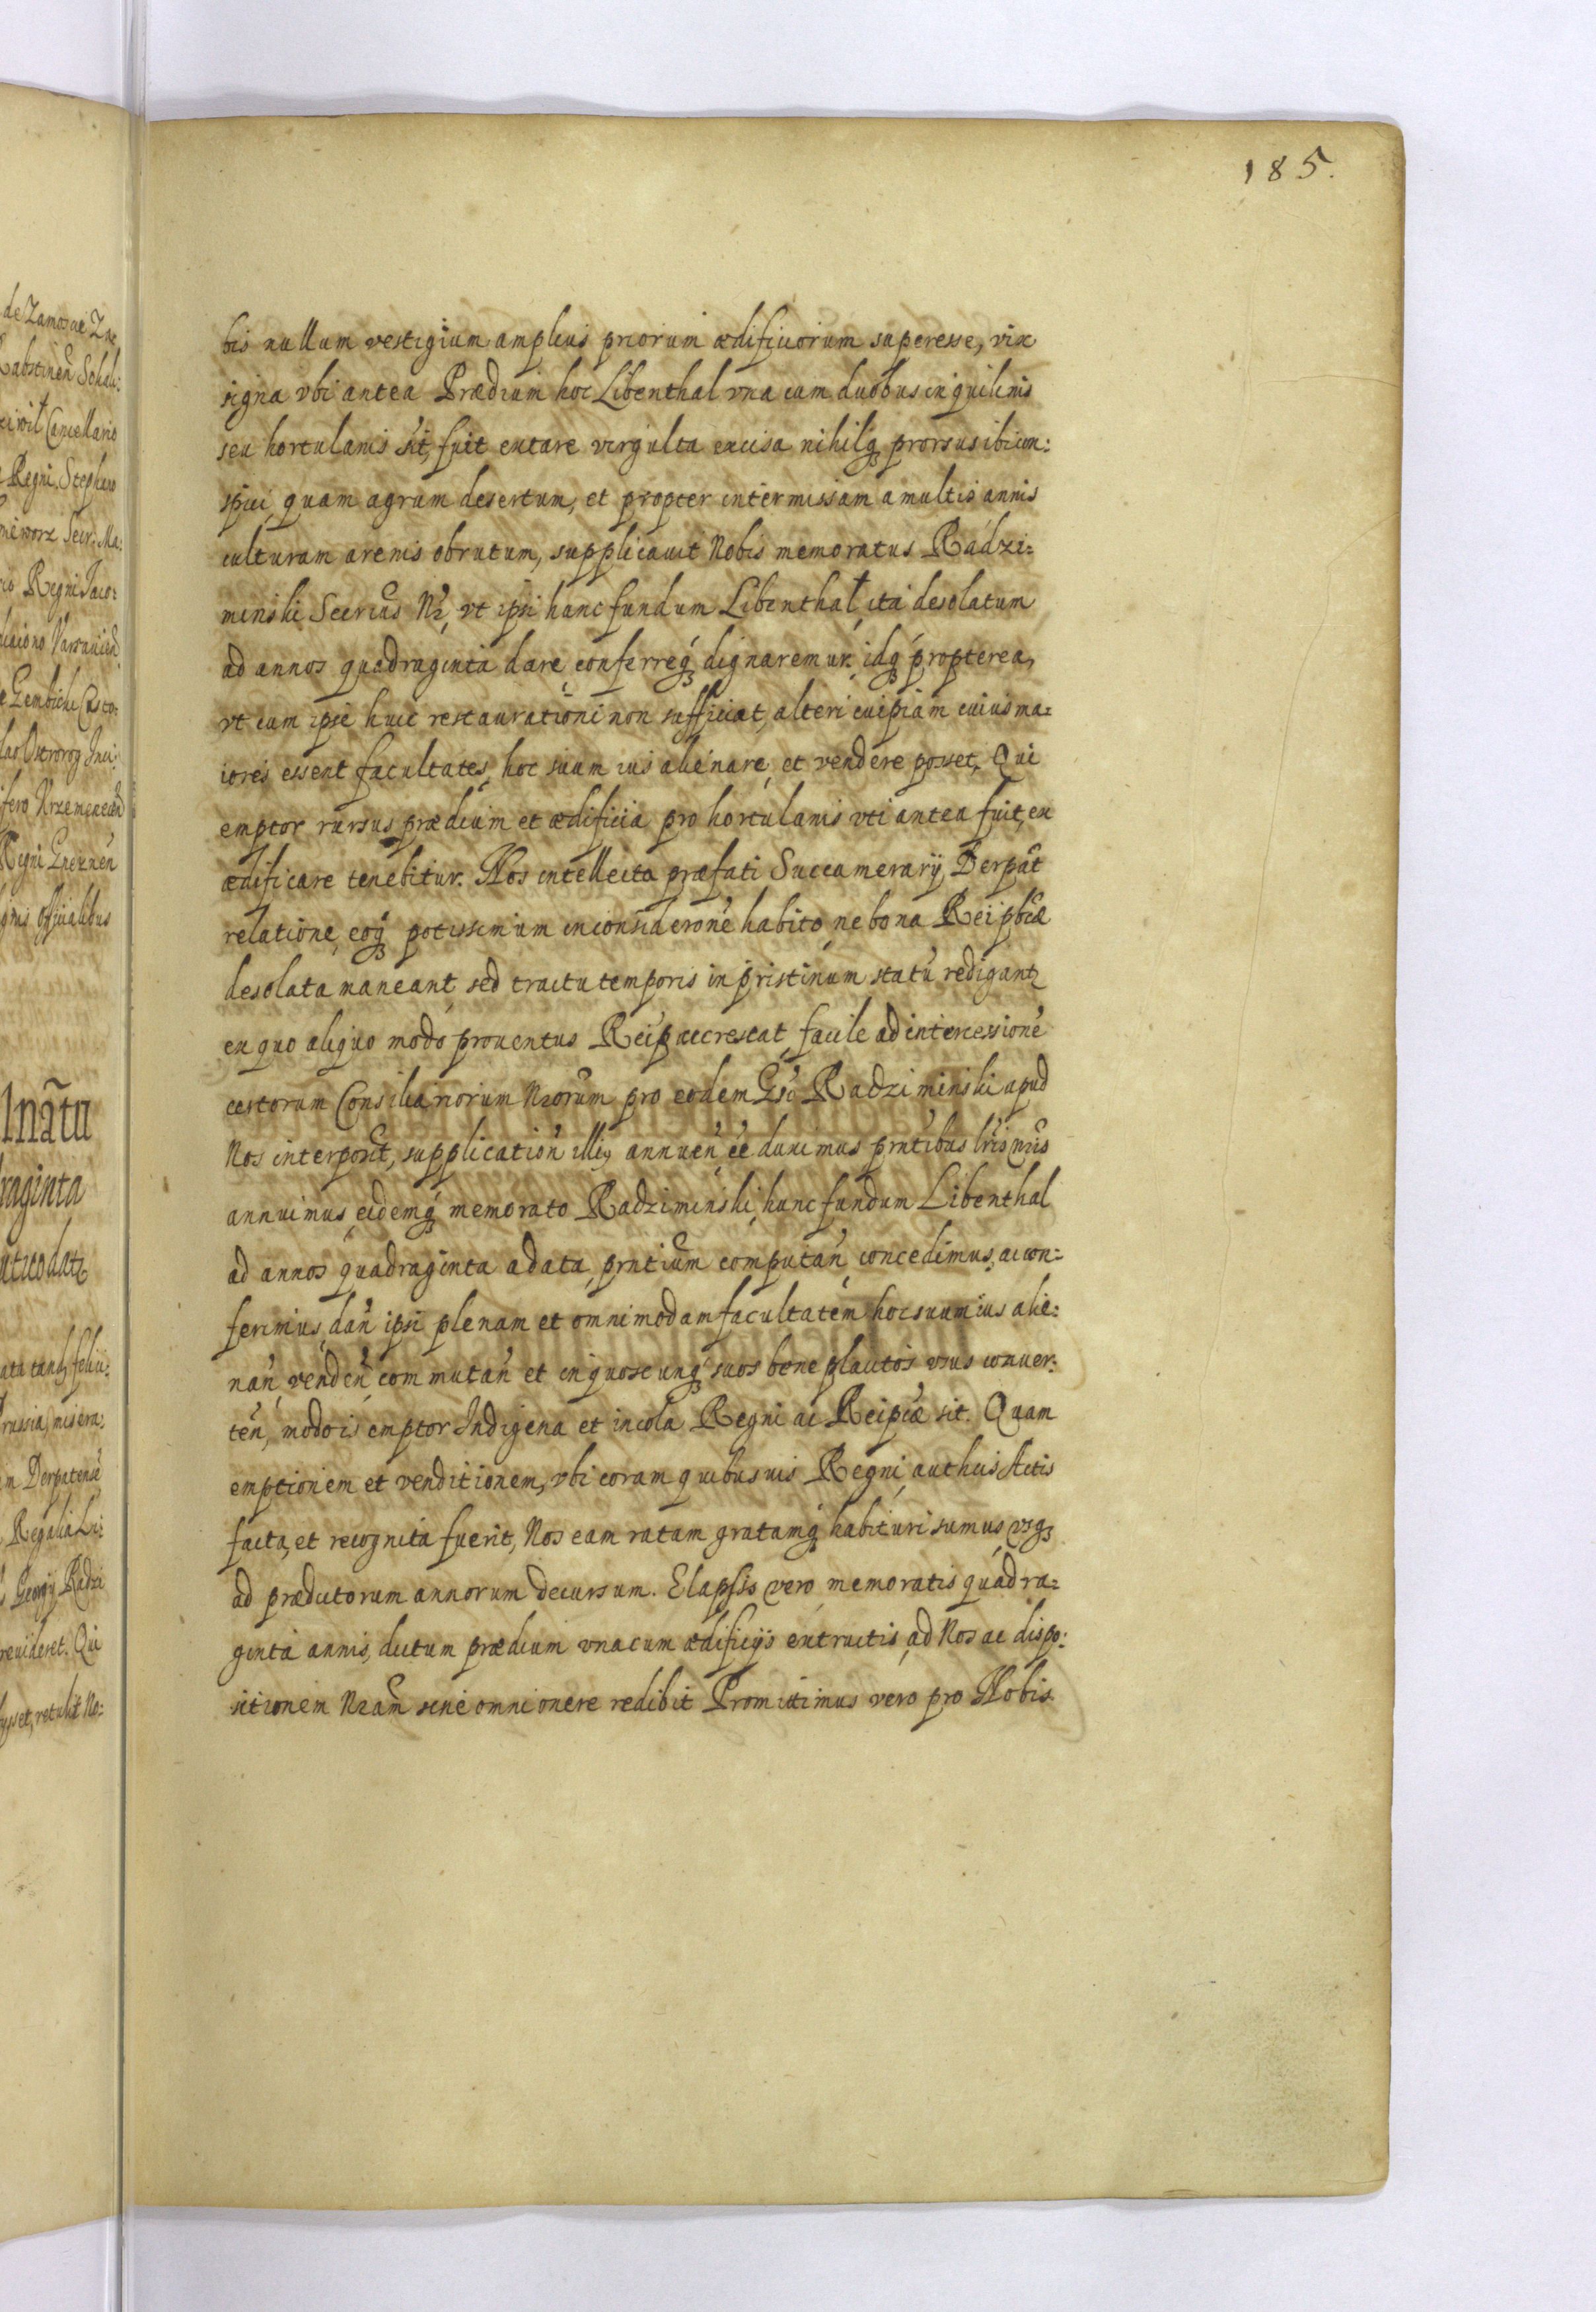 185.
bis nullum vestigium amplius priorum ædificiorum superesse, vix
signa vbi antea Prædium hoc Libenthal vna cum duobus inquilinis
seu hortulanis sit, fuit extare virgulta excisa nihilq₃ prorsus ibi con:
spici quam agrum desertum, et propter intermissam a multis annis
culturam arenis obrutum, supplicauit Nobis memoratus Radzi:
minski Secrius Nr, vt ipsi hunc fundum Libenthal, ita desolatum
ad annos quadraginta dare conferreq₃ dignaremur, idq₃ propterea,
vt cum ipse huic restaurationi non sufficiat, alteri cuipiam cuius ma:
iores essent facultates, hoc suum ius alienare, et vendere posset, Qui
emptor rursus prædium et ædificia pro hortulanis vti antea fuit, ex
ædificare tenebitur. Nos intellecta præfati Succamerarij Derpat
relatione, eoq₃ potissimum in consideroné habito, ne bona Reipbcæ
desolata maneant, sed tractu temporis in pristinum statú redigantz
ex quo aliquo modo prouentus Reip accrescat, facile ad intercessioné
certorum Consiliariorum Nrorum pro eodem Gso Radziminski apud
Nos interposit, supplication illi9 annuen ee duximus prntibus lris nris
annuimus, eidemq₃ memorato Radziminski, hunc fundum Libenthal
ad annos quadraginta a data prntium computan, concedimus, ac con:
ferimus, dan ipsi plenam et omnimodam facultatem hoc suum ius alie:
nan, venden, commutan et in quoscunq₃ suos bene placitos vsus conuer:
ten, modo is emptor Indigena et incola Regni ac Reipcæ sit. Quam
emptionem et venditionem, vbi coram quibusuis Regni, authcis Actis
facta, et recognita fuerit, Nos eam ratam gratamq₃ habituri sumus, vsq₃
ad prædictorum annorum decursum. Elapsis vero memoratis quadra:
ginta annis, dictum prædium vna cum ædificijs extructis, ad Nos ac dispo:
sitionem Nram sine omni onere redibit Promittimus vero pro Nobis